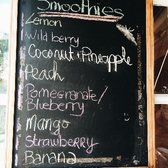 Smoothies
Lemon
Wild berry
Coconut + Pineapple
Peach
Pomegranate/
Blueberry
Mango
Strawberry
Banana